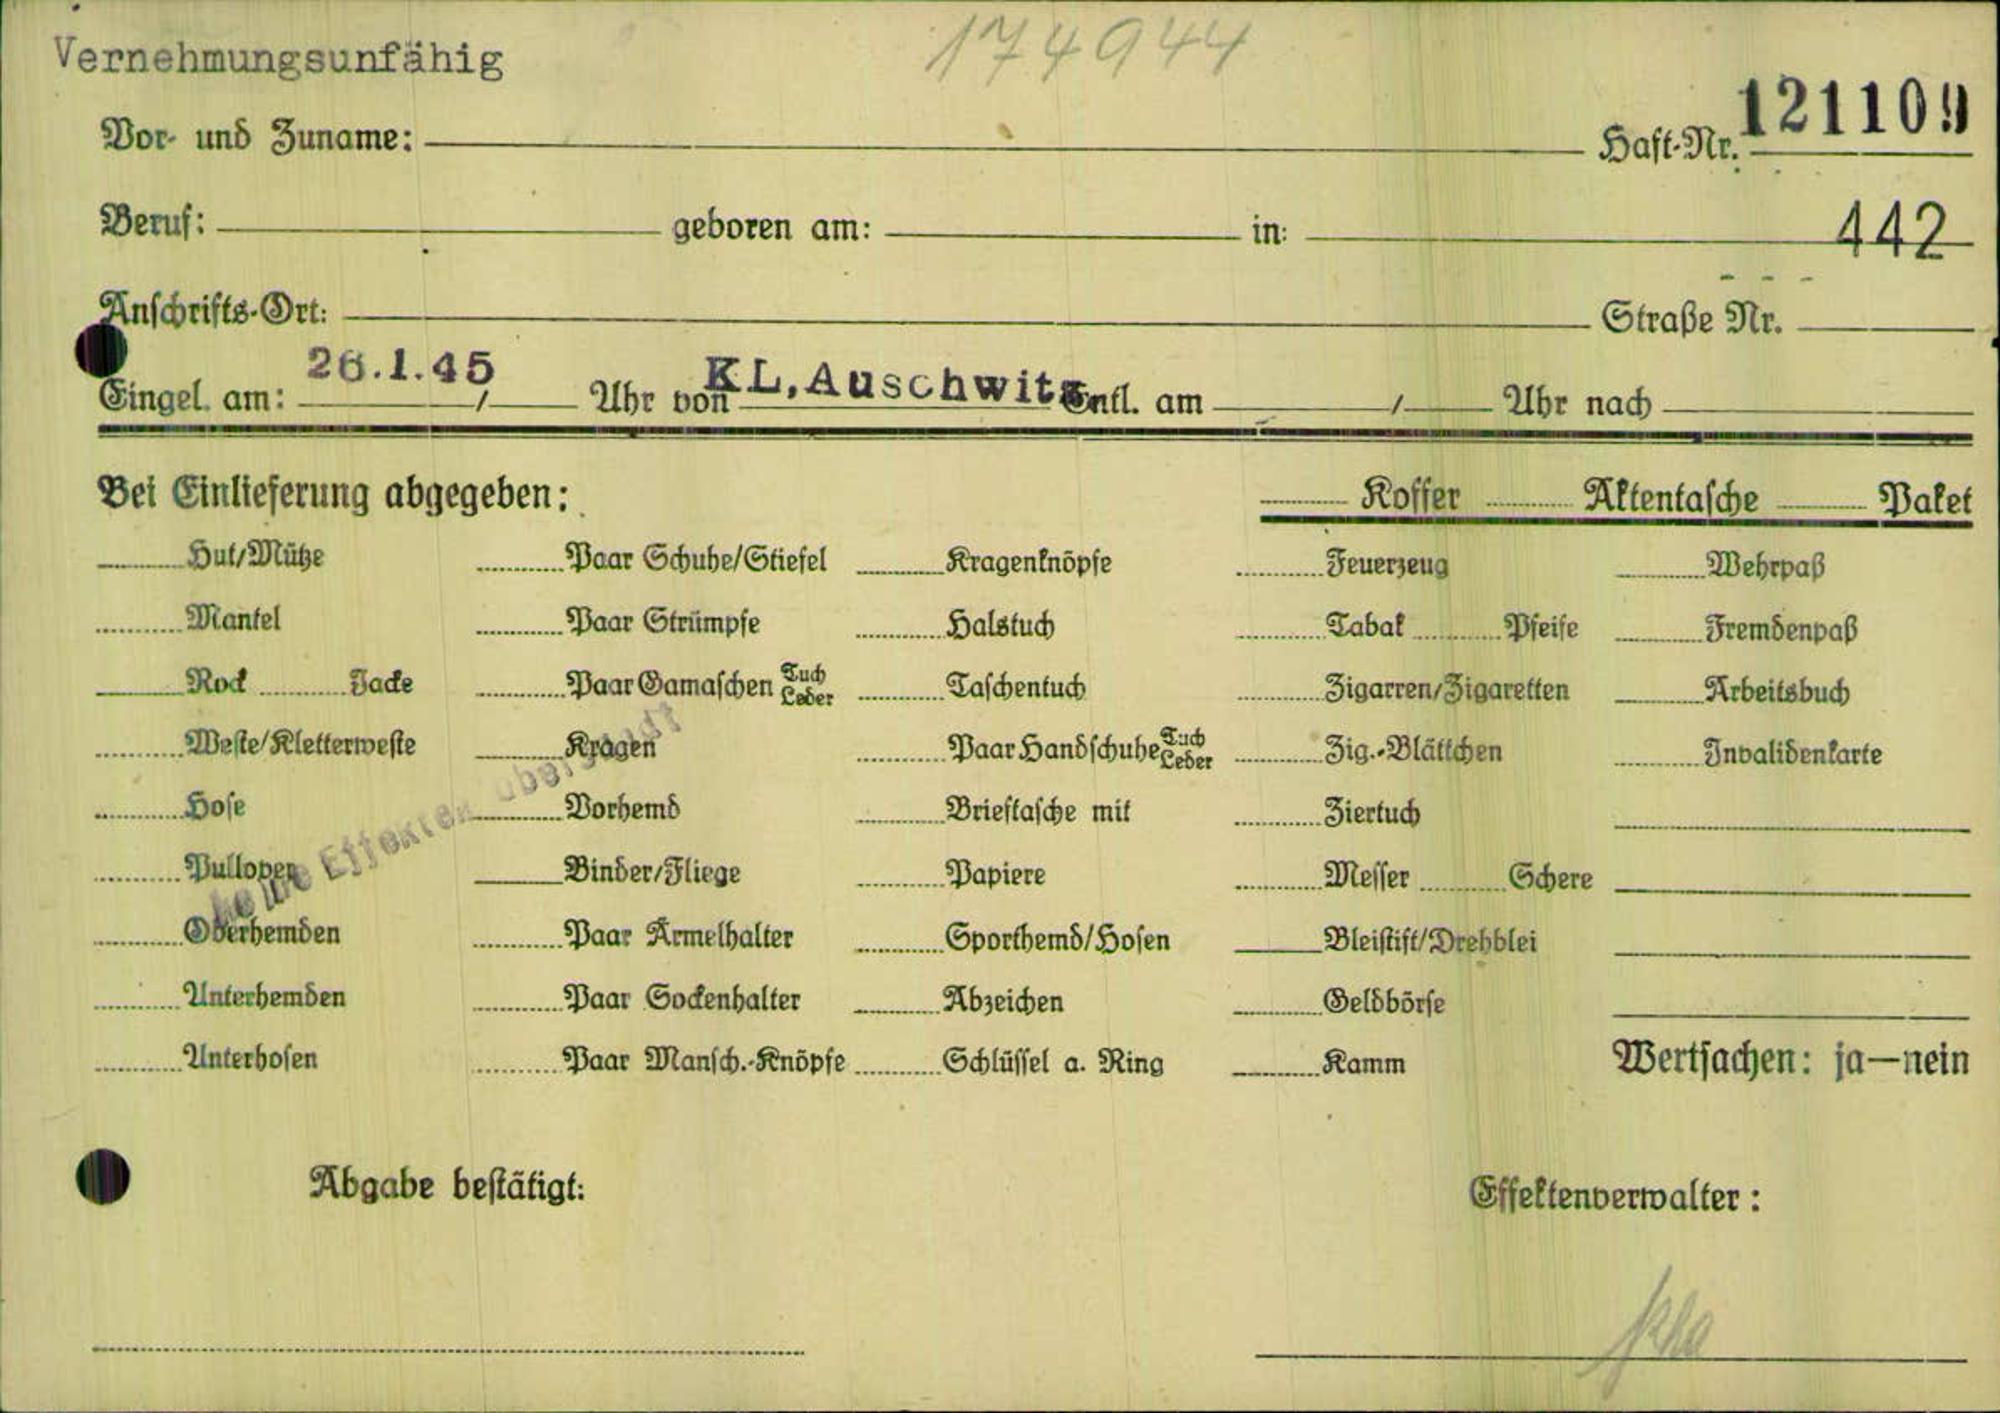 Vernehmungsunfähig
174944
Vor- und Zuname:
Haft-Nr. 121109
Beruf: geboren am: in: 442
Anschrifts-Ort: Straße Nr.
Eingel. am: 26.1.45 / Uhr von KL, Auschwitz Entl. am / Uhr nach
Bei Einlieferung abgegeben: Koffer Aktentasche Paket
Hut/Mütze Paar Schuhe/Stiefel Kragenknöpfe Feuerzeug Wehrpaß
Mantel Paar Strümpfe Halstuch Tabak Pfeife Fremdenpaß
Rock Jacke Paar Gamaschen Tuch Leder Taschentuch Zigarren/Zigaretten Arbeitsbuch
Weste/Kletterweste Kragen Paar Handschuhe Tuch Leder Zig.-Blättchen Invalidenkarte
Hose Vorhemd Brieftasche mit Ziertuch
Pullover Binder/Fliege Papiere Messer Schere
keine Effekten übersandt
Oberhemden Paar Ärmelhalter Sporthemd/Hosen Bleistift/Drehblei
Unterhemden Paar Sockenhalter Abzeichen Geldbörse
Unterhosen Paar Mansch.-Knöpfe Schlüssel a. Ring Kamm Wertsachen: ja—nein
Abgabe bestätigt: Effektenverwalter: